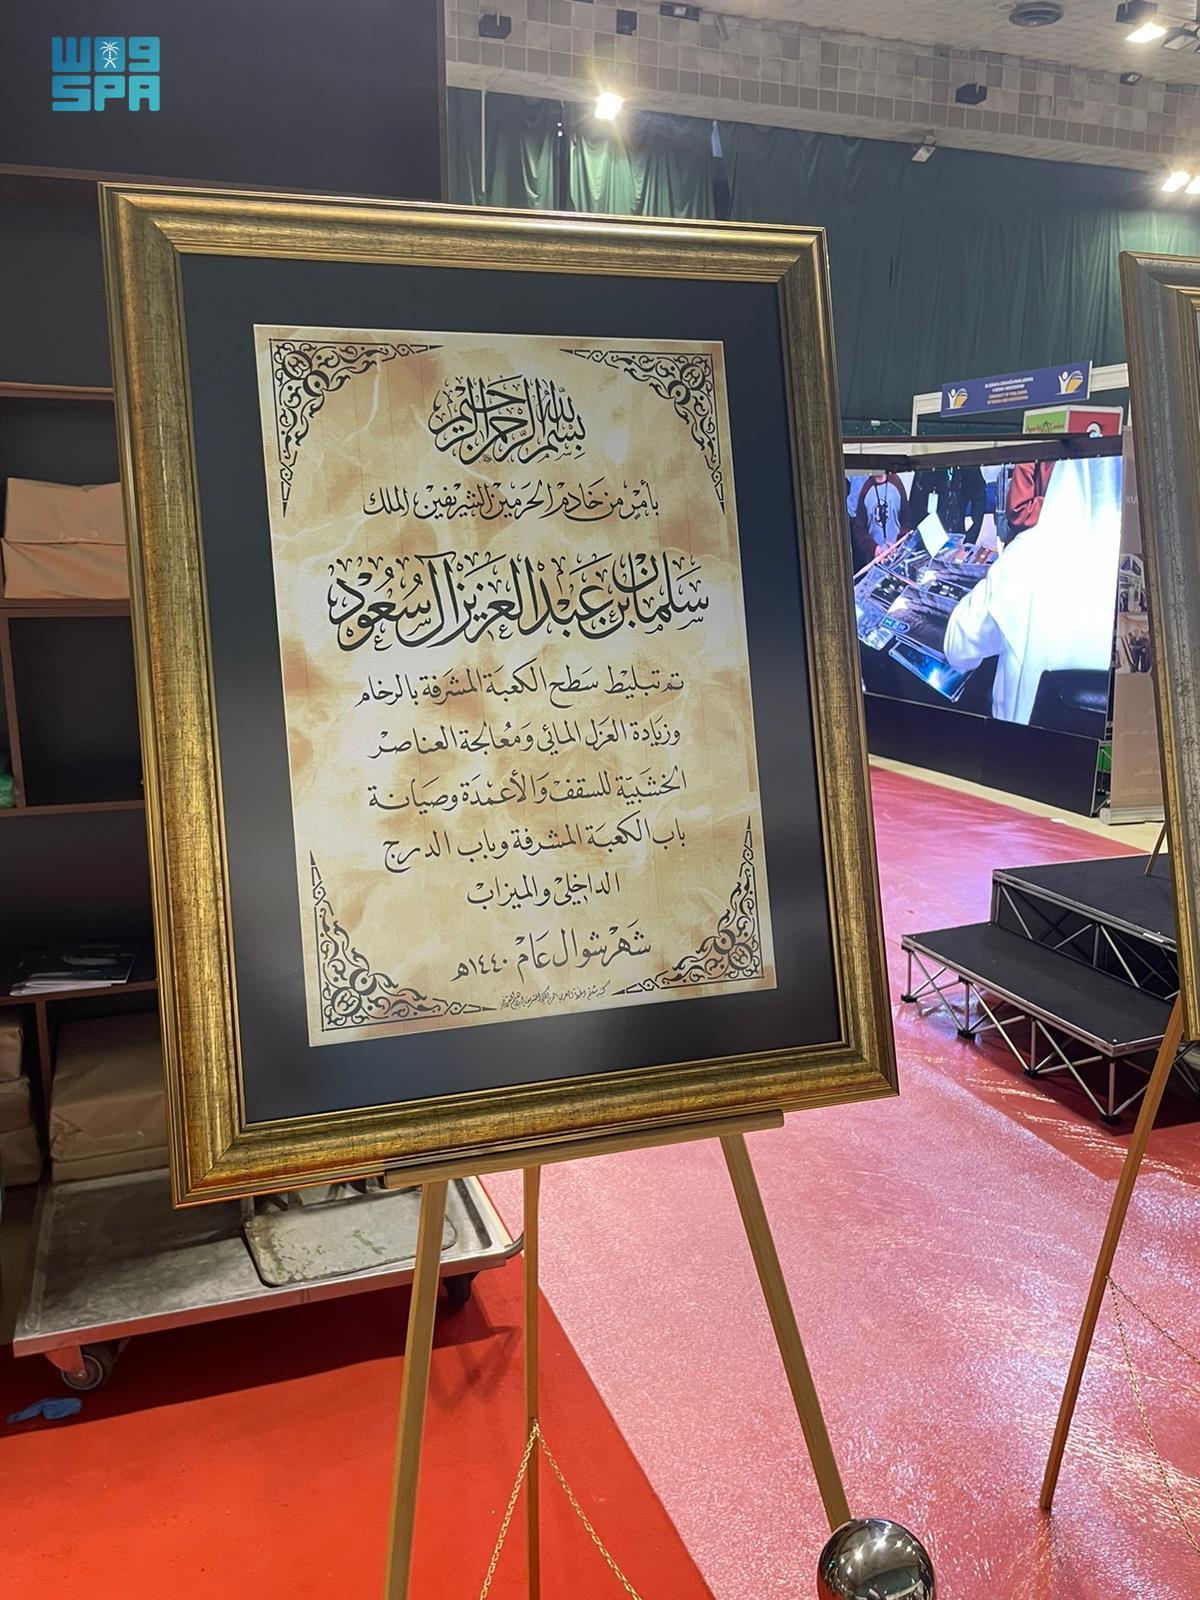 واس
SPA
بسم الله الرحمن الرحيم
بأمرٍ من خادم الحرمين الشريفين الملك
سلمان بن عبد العزيز آل سعود
تم تبليط سطح الكعبة المشرفة بالرخام
وزيادة العزل المائي ومعالجة العناصر
الخشبيّة للسقف والأعمدة وصيانة
باب الكعبة المشرفة وباب الدرج
الداخلي والميزاب
شهر شوال عام ١٤٤٠هـ